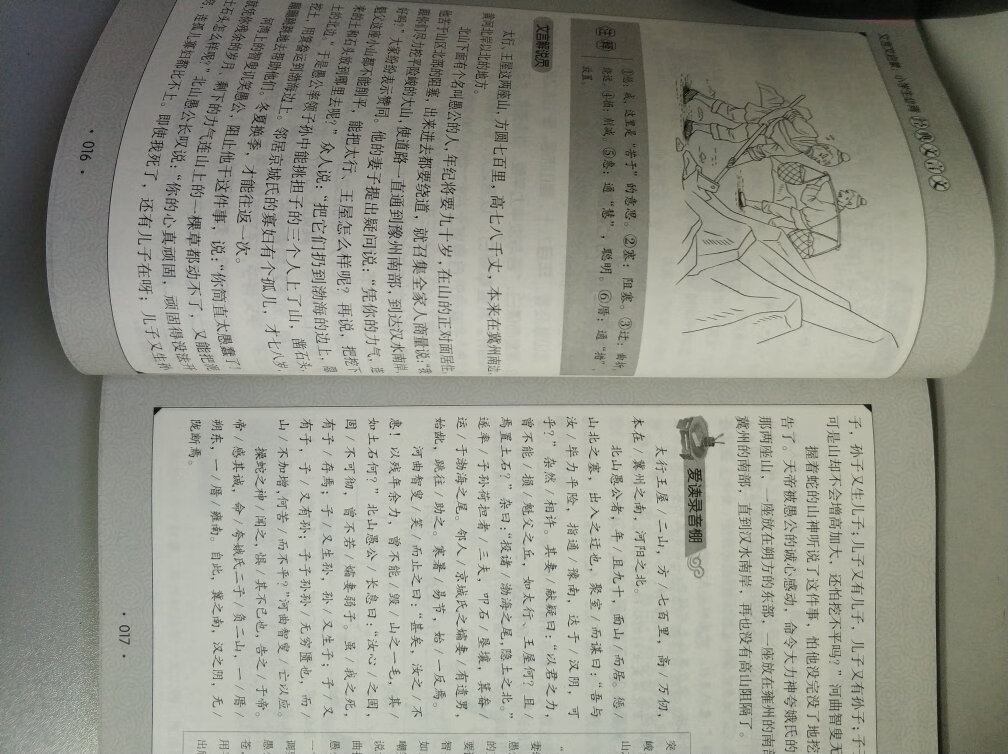 文言文启蒙，小学生必背
经典文言文
注释
①    ：或，这里是“若干”的意思。②塞：阻塞。③迂：曲折
绕远。④损：削减。⑤惠：通“慧”，聪明。⑥厝：通“措”，
放置。
文言解说员
太行、王屋这两座山，方圆七百里，高七八千丈，本来在冀州南边，
黄河北岸以北的地方。
北山下面有个名叫愚公的人，年纪将要九十岁，在山的正对面居住。
他苦于山区北部的阻塞，出来进去都要绕道，就召集全家人商量说：“我
跟你们尽力挖平险峻的大山，使道路一直通到豫州南部，到达汉水南岸，
好吗？”大家纷纷表示赞同。他的妻子提出疑问说：“凭你的力气，连
魁父这座小山都不能削平，能把太行、王屋怎么样呢？再说，把挖下
来的土和石头放到哪里去呢？”众人说：“把它们扔到渤海的边上，
土的北边。”于是愚公率领子孙中能挑担子的三个人上了山，凿石头，
挖土，用箕畚运到渤海边上。邻居京城氏的寡妇有个孤儿，才七八岁，
蹦蹦跳跳地去帮助他们。冬夏换季，才能往返一次。
河湾上的智叟讥笑愚公，阻止他干这件事，说：“你简直太愚蠢了！
就凭你残余的岁月、剩下的力气连山上的一棵草都动不了，又能把泥
土石头怎么样呢？”北山愚公长叹说：“你的心真顽固，顽固得没法开
窍，连孤儿寡妇都比不上。即使我死了，还有儿子在呀；儿子又生孙
·016·
子，孙子又生儿子；儿子又有儿子，儿子又有孙子；子
可是山却不会增高加大，还怕挖不平吗？”河曲智叟无
握着蛇的山神听说了这件事，怕他没完没了地挖
告了。天帝被愚公的诚心感动，命令大力神夸娥氏的
那两座山，一座放在朔方的东部，一座放在雍州的南部
冀州的南部，直到汉水南岸，再也没有高山阻隔了。
爱读录音棚
太行王屋/二山，方/七百里，高/万仞，
本在/冀州之南，河阳之北。
北山愚公者，年/且九十，面山/而居。惩/
山北之塞，出入之迂也，聚室/而谋曰：“吾与
汝/毕力平险，指通/豫南，达于/汉阴，可
乎？”杂然/相许。其妻/献疑曰：“以君之力，
曾不能/损/魁父之丘，如太行、王屋何？且/
焉置土石？”杂曰：“投诸/渤海之尾，隐土之北。”
遂率/子孙荷担者/三夫，叩石/垦壤，箕畚/
运/于渤海之尾。邻人/京城氏之孀妻/有遗男，
始龀，跳往/助之。寒暑/易节，始/一反焉。
河曲智叟/笑/而止之曰：“甚矣，汝之/不
惠！以残年余力，曾不能/毁/山之一毛，其/
如土石何？”北山愚公/长息曰：“汝心/之固，
固/不可彻，曾不若/孀妻弱子。虽/我之死，
有子/存焉；子/又生孙，孙/又生子；子/又
有子，子/又有孙；子子孙孙/无穷匮也，而/
山/不加增，何苦/而不平？”河曲智叟/亡以应。
操蛇之神/闻之，惧/其不已也，告之/于帝。
帝/感其诚，命/夸娥氏二子/负二山，一/厝/
朔东，一/厝/雍南。自此，冀之南，汉之阴，无/
陇断焉。
·017·